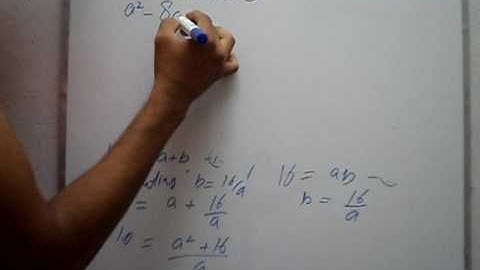 a² - 8a
a+b
b = 16/a
= a + 16/a
10 = a² + 16 / a
16 = ab
b = 16/a